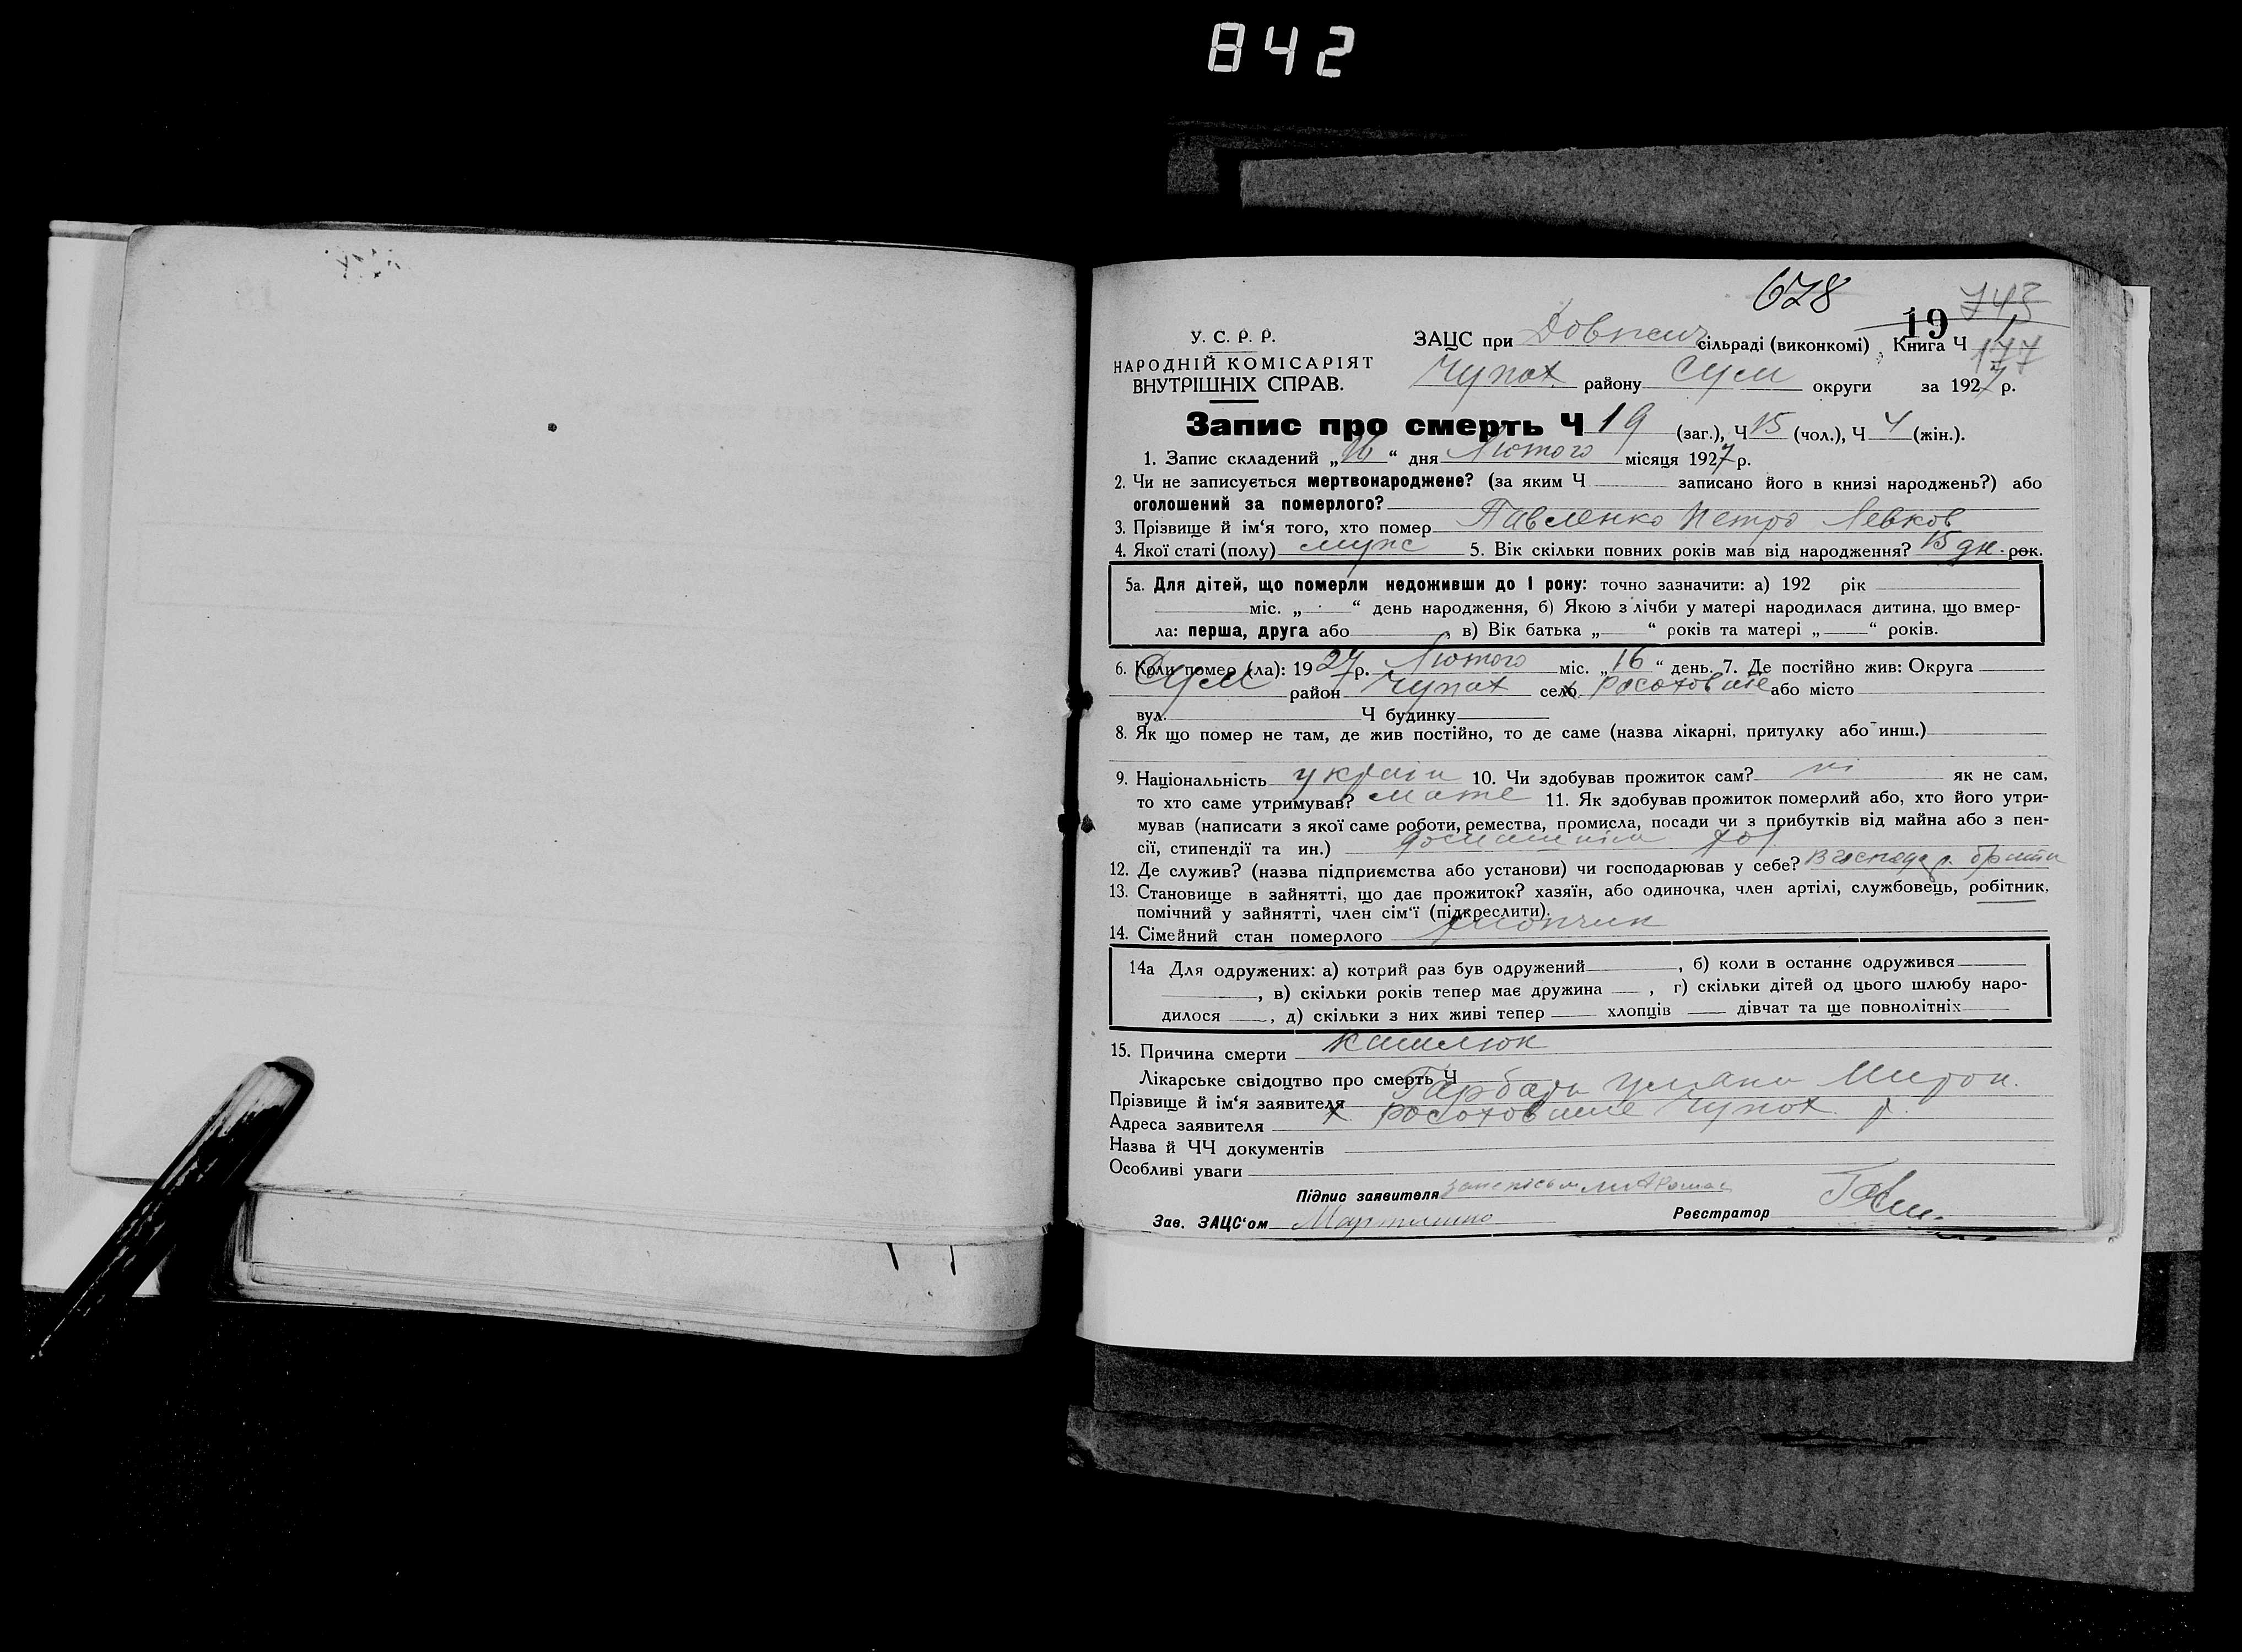 842
678
743
19
177
У. С. Р. Р.
НАРОДНІЙ КОМІСАРІЯТ
ВНУТРІШНІХ СПРАВ.
ЗАЦС при сільраді (виконкомі) Книга Ч
Чупах району Сум округи за 1927 р.
Запис про смерть Ч 19 (заг.), Ч 15 (чол.), Ч 4 (жін.).
1. Запис складений „16“ дня Лютого місяця 1927 р.
2. Чи не записується мертвонароджене? (за яким Ч записано його в книзі народжень?) або
оголошений за померлого?
3. Прізвище й ім‘я того, хто помер Павленко Петро Левков
4. Якої статі (полу) мужс 5. Вік скільки повних років мав від народження? 15 дн. рок.
5а. Для дітей, що померли недоживши до 1 року: точно зазначити: а) 192 рік
міс. „ “ день народження, б) Якою з лічби у матері народилася дитина, що вмер-
ла: перша, друга або , в) Вік батька „ “ років та матері „ “ років.
6. Коли помер (ла): 1927 р. Лютого міс. „16“ день. 7. Де постійно жив: Округа
Сум район Чупах село х росоховате або місто
вул. Ч будинку
8. Як що помер не там, де жив постійно, то де саме (назва лікарні, притулку або инш.)
9. Національність україн 10. Чи здобував прожиток сам? ні як не сам,
то хто саме утримував? мате 11. Як здобував прожиток померлий або, хто його утри-
мував (написати з якої саме роботи, ремества, промисла, посади чи з прибутків від майна або з пен-
сії, стипендії та ин.)
12. Де служив? (назва підприємства або установи) чи господарював у себе?
13. Становище в зайнятті, що дає прожиток? хазяїн, або одиночка, член артілі, службовець, робітник,
помічний у зайнятті, член сім‘ї (підкреслити).
14. Сімейний стан померлого хлопчик
14а Для одружених: а) котрий раз був одружений , б) коли в останнє одружився
, в) скільки років тепер має дружина , г) скільки дітей од цього шлюбу наро-
дилося , д) скільки з них живі тепер хлопців дівчат та ще повнолітніх
15. Причина смерти кашлюк
Лікарське свідоцтво про смерть Ч
Прізвище й ім‘я заявителя Гарбарь Уляна Мирон.
Адреса заявителя х росоховате Чупах р.
Назва й ЧЧ документів
Особливі уваги
Підпис заявителя
Зав. ЗАЦС‘ом Реєстратор